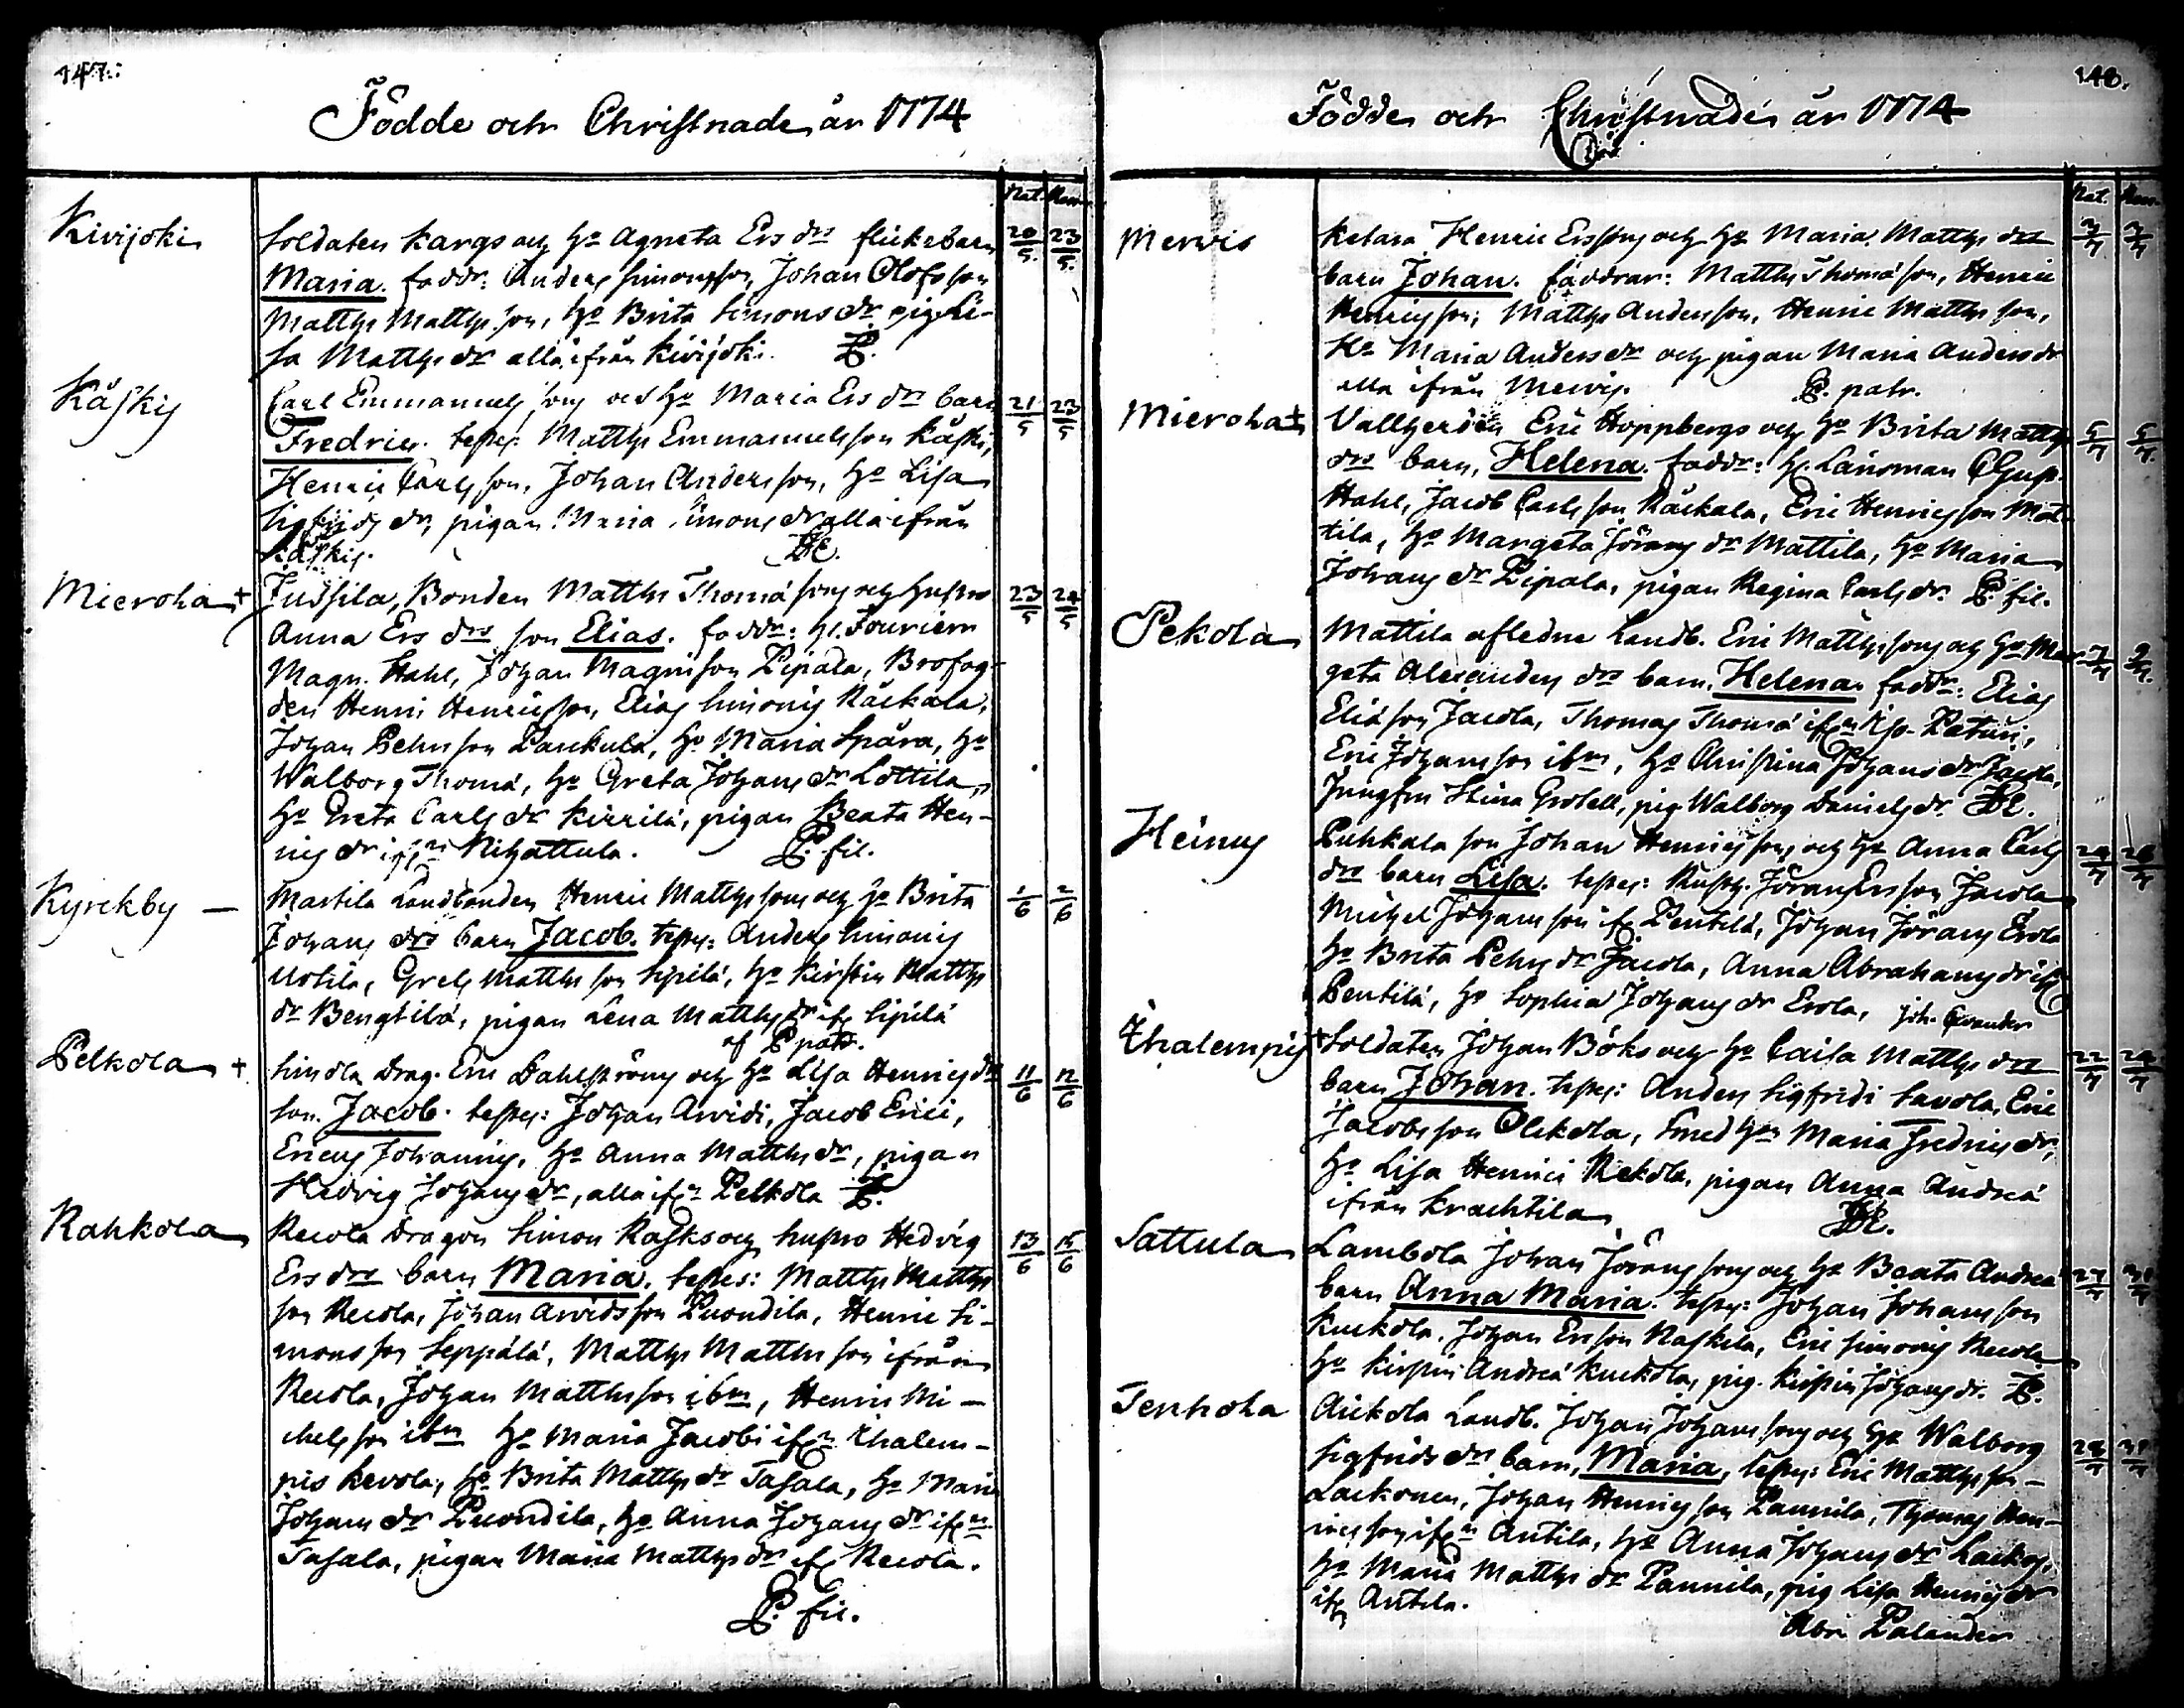 147.
Födde och Christnade år 1774
Nat. Ren.
Kivijoki
Soldaten Kargs och ho Agneta Ers drs flickebarn 20/5 23/5
Maria. faddr: Anders Simonsson, Johan Olofsson
Matths Mattsson, ho Brita Simons dr pig Li-
sa Matths dr alla ifrån Kivijoki. P.
Käskis
Carl Emmanuels sons och ho Maria Ers drs barn 21/5 23/5
Fredric. testes: Matths Emmanuelsson Käskis,
Henric Carlsson, Johan Andersson, ho Lisa
Sigfrids dr, pigan Maria Simons dr alla ifrån
Käskis.
Mierola +
Jussila, Bonden Matths Thomæ sons och hustro 23/5 24/5
Anna Ers drs son Elias. faddr: H. Fouriern
Magn. Hahl, Johan Magnisson Pipala, Brofog-
den Henric Henricsson, Elias Simonis Räckala,
Johan Pehrsson Parckula, ho Maria Spåra, ho
Walborg Thomæ, ho Greta Johans dr Lottila,
ho Greta Carls dr Kirrilä, pigan Beata Hen-
rics dr ifrn Nihattula. P. fil.
Kyrckby —
Martila Landbonden Henric Matths sons och ho Brita 1/6 2/6
Johans drs barn Jacob. testes: Anders Simonis
Uotila, Grels Matthsson Sipilä, ho Kirstin Matths
dr Bengtilä, pigan Lena Matths dr ifr Sipilä
af P patr.
Pelkola +
Simola Drag. Eric Dahlströms och ho Lisa Henrics drs 11/6 12/6
son. Jacob. testes: Johan Arvidi, Jacob Erici,
Ericus Johannis, ho Anna Matths dr, pigan
Hedvig Johans dr, alla ifrn Pelkola P.
Rahkola
Recola Dragon Simon Rasks och hustro Hedvig 13/6 15/6
Ers drs barn Maria. testes: Matths Matths
son Recola, Johan Arvidsson Puondila, Henric Si-
monsson Seppälä, Matths Matthsson ifrån
Recola, Johan Matthsson ibm, Henric Mi-
chelsson ibm ho Maria Jacobi ifrn Ihalem-
pis Kevola, ho Brita Matths dr Tasala, ho Maria
Johans dr Puondila, ho Anna Johans dr ifrn
Tasala, pigan Maria Matths dr ifr Recola.
P. fil.
148.
Födde och Christnade år 1774
Nat. Ren.
Mervis
Ketara Henric Erssons och ho Maria Matths drs 3/7 3/7
barn Johan. faddrar: Matths Thomæson, Henric
Henricsson, Matths Andersson, Henric Matthsson,
Ho Maria Anders dr och pigan Maria Anders dr
alla ifrån Mervis. P. patr.
Mierola +
Vallgerdin Eric Hoppbergs och ho Brita Matths 5/7 5/7
drs barn, Helena. faddr: H. Länsman
Hahl, Jacob Carlsson Räckala, Eric Henricsson Mat-
tila, ho Margeta Jörans dr Mattila, ho Maria
Johans dr Pipala, pigan Regina Carls dr. P. fil.
Pekola
Mattila afledne Landb. Eric Matthssons och ho Mar- 7/7 9/7
geta Alexanders drs barn. Helena. faddr: Elias
Eliæson Jacola, Thomas Thomæ
Eric Johansson ibm, ho Christina Johans dr Jacola,
Jungfru Stina Grotell, pig Walborg Daniels dr.
Heinus
Puhkala son Johan Henrics sons och ho Anna Carls 24/7 26/7
drs barn Lisa. testes: Rusth. Jöran Ersson Jacola
Michel Johansson ifr Pentilä, Johan Jörans Erola
ho Brita Pehrs dr Jacola, Anna Abrahams dr ifr
Pentilä, ho Sophia Johans dr Erola, Joh.
Ihalempis +
Soldaten Johan Böks och ho Caisa Matths drs 22/7 24/7
barn Johan. testes: Anders Sigfridi Savola, Eric
Jacobsson Olckola, Smed hon Maria Fredrics dr,
ho Lisa Henrici Rekola, pigan Anna Andreæ
ifrån Krachtila
Sattula
Lambola Johan Jöranssons och ho Beata Andreæ 27/7 31/7
barn Anna Maria. testes: Johan Johansson
Kuckola, Johan Ersson Raskila, Eric Simonis Recola
ho Kirstin Andreæ Kuckola, pig. Kirstin Johans dr. P.
Tenhola
Aickola Landb. Johan Johanssons och ho Walborg 28/7 31/7
Sigfrids drs barn, Maria, testes: Eric Matthsson —
Lackonen, Johan Henricsson Pannila, Thomas Hen-
ricsson ifrn Antila, ho Anna Johans dr Lackon,
ho Maria Matths dr Pannila, pig Lisa Henrics dr
ifr Antila.
Abr. Palander